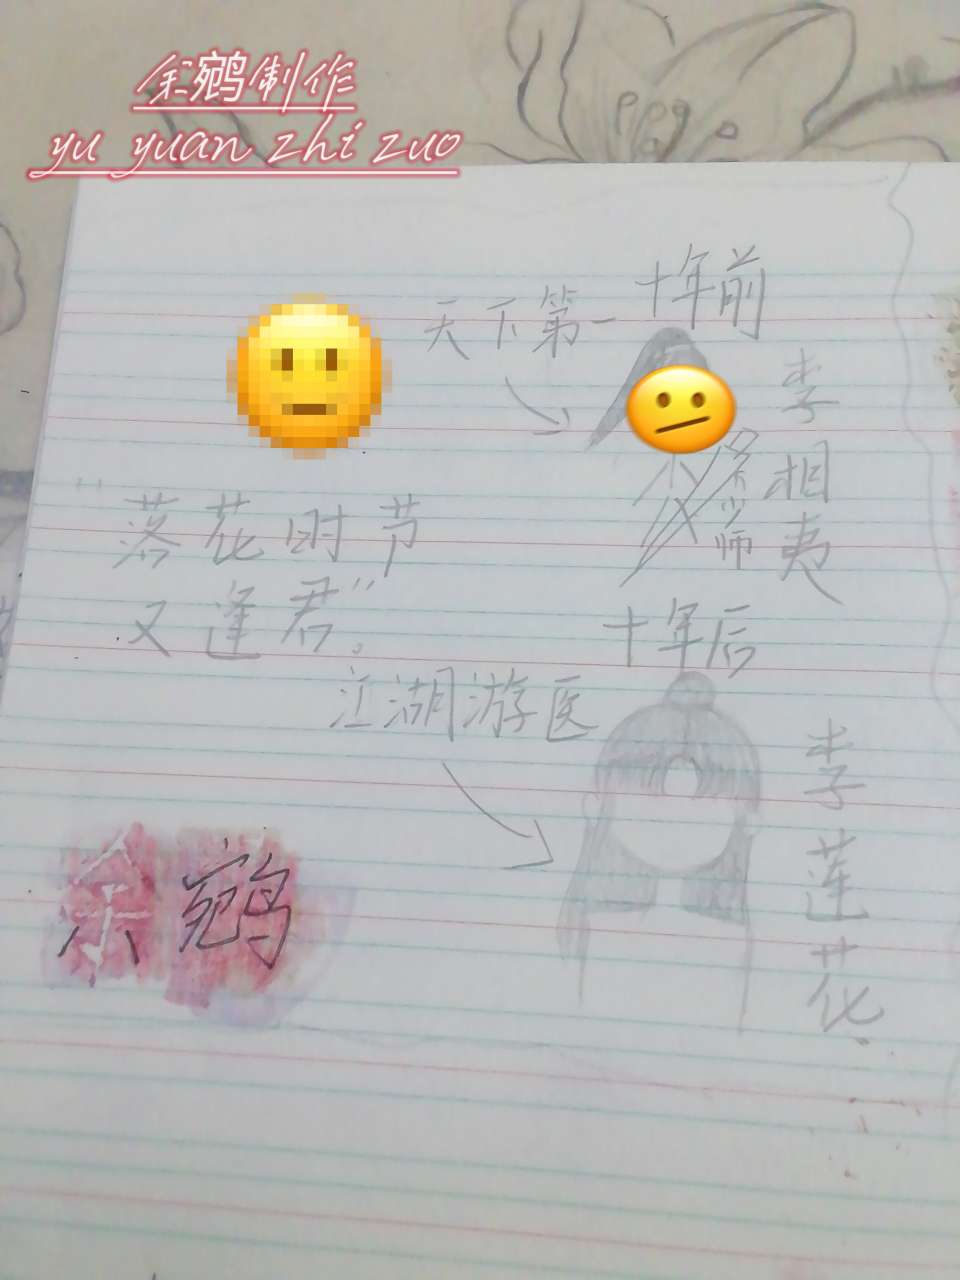 余鹓制作
yu yuan zhi zuo
十年前
天下第一
李相夷
"落花时节
又逢君"。
十年后
江湖游医
李莲花
余鹓